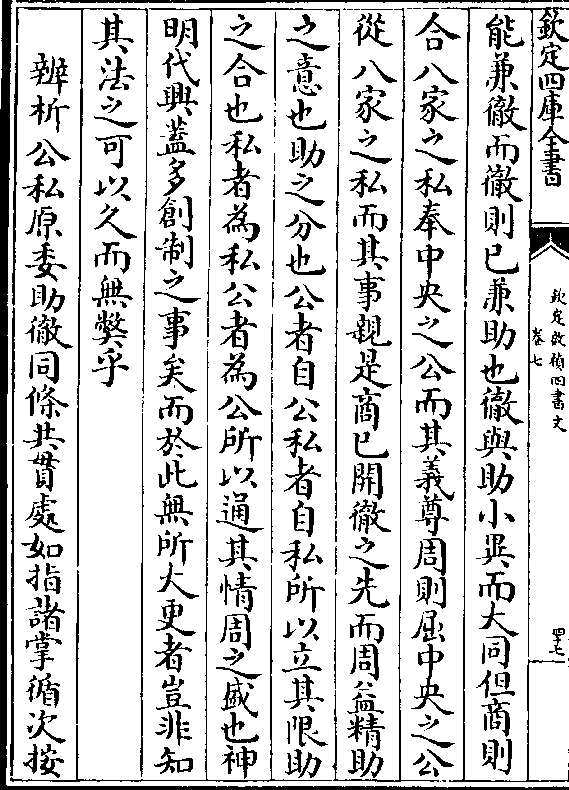 欽定四庫全書
欽定啟禎四書文
卷七
四十七
能兼徹而徹則已兼助也徹與助小異而大同但商則
合八家之私奉中央之公而其義尊周則屈中央之公
從八家之私而其事親是商已開徹之先而周益精助
之意也助之分也公者自公私者自私所以立其限助
之合也私者為私公者為公所以通其情周之盛也神
明代興蓋多創制之事矣而於此無所大更者豈非知
其法之可以久而無弊乎
辨析公私原委助徹同條共貫處如指諸掌循次按